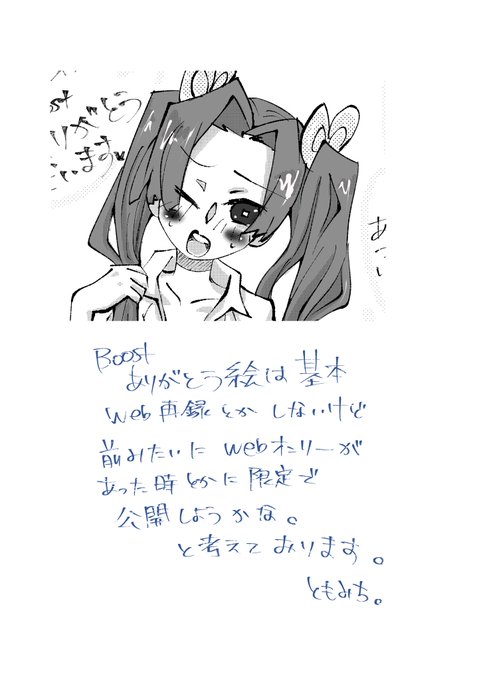 Boost
ありがとう
ざいます
あつい
Boost
ありがとう絵は基本
Web再録とかしないけど
前みたいにwebオンリーが
あった時とかに限定で
公開しようかな。
と考えております。
ともみち。